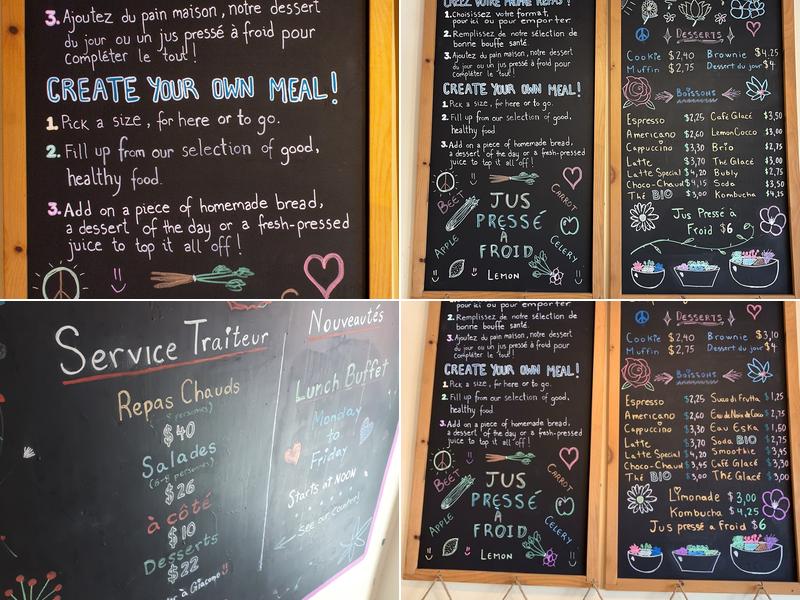 3. Ajoutez du pain maison, notre dessert
du jour ou un jus pressé à froid pour
compléter le tout!
CREATE YOUR OWN MEAL!
1. Pick a size, for here or to go.
2. Fill up from our selection of good,
healthy food.
3. Add on a piece of homemade bread,
a dessert of the day or a fresh-pressed
juice to top it all off!
CRÉEZ VOTRE PROPRE REPAS!
1. Choisissez votre format,
pour ici ou pour emporter.
2. Remplissez de notre sélection de
bonne bouffe santé.
3. Ajoutez du pain maison, notre dessert
du jour ou un jus pressé à froid pour
compléter le tout!
CREATE YOUR OWN MEAL!
1. Pick a size, for here or to go.
2. Fill up from our selection of good,
healthy food
3. Add on a piece of homemade bread,
a dessert of the day or a fresh-pressed
juice to top it all off!
BEET
CARROT
JUS
PRESSÉ
À
FROID
APPLE
CELERY
LEMON
DESSERTS
Cookie $2,40 Brownie $4.25
Muffin $2,75 Dessert du jour $4
Boissons
Espresso $2,25 Café Glacé $3,50
Americano $2,60 Lemon Cocco $3,00
Cappuccino $3,30 Brio $2,75
Latte $3,70 Thé Glacé $3,00
Latte Special $4,20 Bubly $2,75
Choco-Chaud $4,15 Soda $3,50
Thé BIO $3,00 Kombucha $4,15
Jus Pressé à
Froid $6
Service Traiteur
Repas Chauds
$40
Salades
(6-8 personnes)
$26
à côté
$10
Desserts
$22
à Giacomo
Nouveautés
Lunch Buffet
Monday
to
Friday
Starts at NOON
See our counter!
pour ici ou pour emporter
2. Remplissez de notre sélection de
bonne bouffe santé.
3. Ajoutez du pain maison, notre dessert
du jour ou un jus pressé à froid pour
compléter le tout!
CREATE YOUR OWN MEAL!
1. Pick a size, for here or to go.
2. Fill up from our selection of good,
healthy food
3. Add on a piece of homemade bread,
a dessert of the day or a fresh-pressed
juice to top it all off!
BEET
CARROT
JUS
PRESSÉ
À
FROID
APPLE
CELERY
LEMON
DESSERTS
Cookie $2,40 Brownie $3,10
Muffin $2,75 Dessert du jour $4
Boissons
Espresso $2,25 Succo di Frutta $1,25
Americano $2,60 Eau de Noix de Coco $2,75
Cappuccino $3,30 Eau Eska $1,60
Latte $3,70 Soda BIO $2,75
Latte Special $4,20 Smoothie $3,45
Choco-Chaud $3,45 Café Glacé $3,30
Thé BIO $3,00 Thé Glacé $3,00
Limonade $3,00
Kombucha $4,25
Jus pressé à froid $6